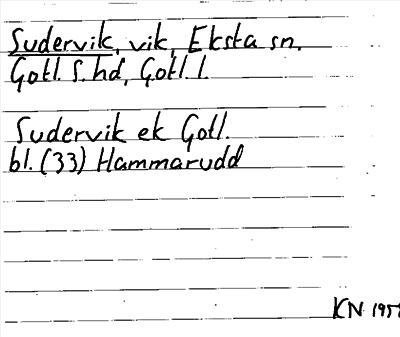 Sudervik, vik, Eksta sn.
Gotl. S. hd, Gotl. l.
Sudervik ek Gotl.
bl. (33) Hammarudd
KN